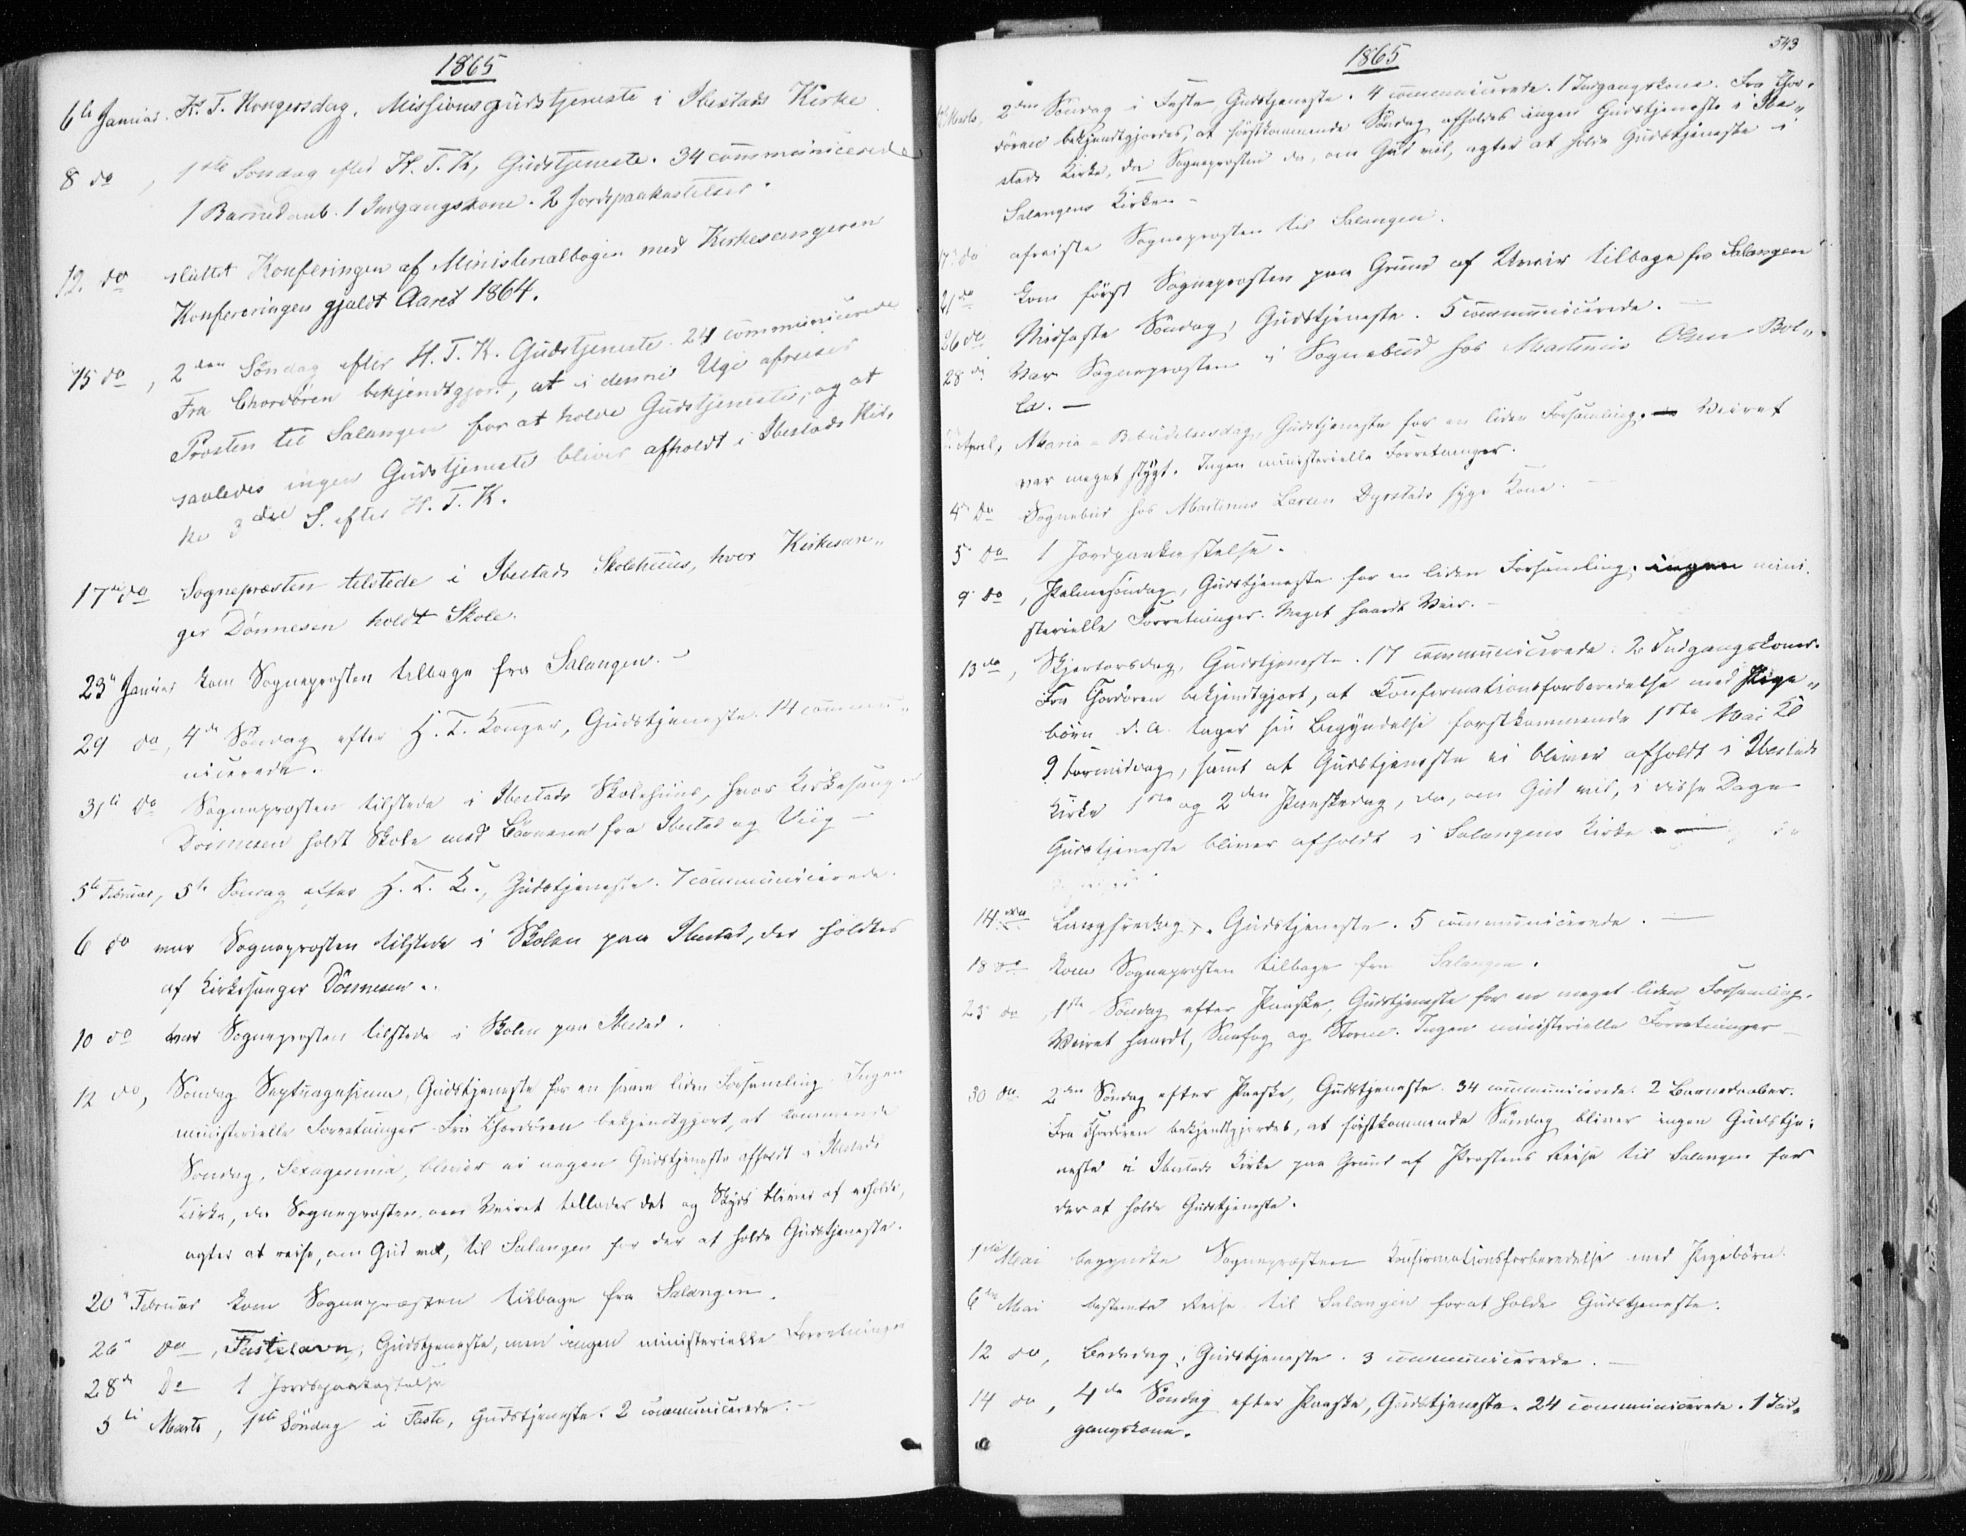 1865
6te Januar. H. T. Kongersdag. Missionsgudstjeneste i Ibestads Kirke
8 do, 1ste Søndag efter H. T. K, Gudstjeneste. 34 communicerede
1 Barnedaab. 1 Indgangskone. 2 Jordpaakastelser.
12. do sluttet Konferingen af Ministerialbogen med Kirkesangeren
Konfereringen gjaldt Aaret 1864.
15 do, 2den Søndag efter H. T. K. Gudstjeneste. 24 communicerede
Fra Chordøren bekjendtgjort, at i denne Uge afreiser
Provsten til Salangen for at holde Gudstjeneste, og at
saaledes ingen Gudstjeneste bliver afholdt i Ibestads Kir-
ke 3die S. efter H. T. K.
17de do Sognepræsten tilstede i Ibestads Skolehuus, hvor Kirkesan-
ger Dønnesen holdt Skole.
23de Januar kom Sognepræsten tilbage fra Salangen. -
29 do, 4de Søndag efter H. T. Konger, Gudstjeneste. 14 commu-
nicerede.
31te do Sognepræsten tilstede i Ibestads Skolehuus, hvor Kirkesanger
Dønnesen holdt Skole med Børnene fra Ibestad og Viig -
5te Februar, 5te Søndag efter H. T. K., Gudstjeneste. 7 communicerede.
6 do var Sognepræsten tilstede i Skolen paa Ibestad, der holdtes
af Kirkesanger Dønnesen.
10 do var Sognepræsten tilstede i Skolen paa Ibestad.
12 do, Søndag Septuagesima, Gudstjeneste for en liden Forsamling. Ingen
ministerielle Forretninger. Fra Chordøren bekjendtgjort, at kommende
Søndag, Sexagesima, bliver ei nogen Gudstjeneste afholdt i Ibestads
Kirke, da Sognepræsten, om Veiret tillader det og Skyds bliver at erholde,
agter at reise, om Gud vil, til Salangen for der at holde Gudstjeneste.
20de Februar kom Sognepræsten tilbage fra Salangen.
26de do, Fastelavn, Gudstjeneste, men ingen ministerielle Forretninger
28de do 1 Jordspaakastelse
5te Marts, 1ste Søndag i Faste, Gudstjeneste. 2 communicerede. -
1865
543
Marts, 2den Søndag i Faste Gudstjeneste. 4 communicerede. 1 Indgangskone. Fra Chor-
døren bekjendtgjordes, at førstkommende Søndag afholdes ingen Gudstjeneste i Ibe-
stads Kirke, da Sognepræsten da, om Gud vil, agter at holde Gudstjeneste i
Salangens Kirke. -
17. do afreiste Sognepræsten til Salangen.
21 do kom først Sognepræsten paa Grund af Uveir tilbage fra Salangen
26 do Midfaste Søndag, Gudstjeneste. 5 communicerede. -
28 do. Var Sognepræsten i Sognebud hos Martinus Olsen Bol-
la. -
April, Maria Bebudelsesdag, Gudstjeneste for en liden Forsamling. Veiret
var meget stygt. Ingen ministerielle Forretninger.
4de do Sognebud hos Martinus Larsen Dyrstads syge Kone. -
5 do 1 Jordpaakastelse.
9 do, Palmesøndag, Gudstjeneste for en liden Forsamling. ingen mini-
sterielle Forretninger. Meget haardt Veir. -
13 do, Skjertorsdag, Gudstjeneste. 17 communicerede. 2 Indgangskoner.
Fra Chordøren bekjendtgjort, at Konfirmationsforberedelse med Pige-
børn d. A. tager sin Begyndelse førstkommende 1ste Mai Kl
9 Formiddag, samt at Gudstjeneste ei bliver afholdt i Ibestads
Kirke 1ste og 2den Paaskedag, da, om Gud vil, i disse Dage
Gudstjeneste bliver afholdt i Salangens Kirke
14 do Langfredag, Gudstjeneste. 5 communicerede. -
18 do kom Sognepræsten tilbage fra Salangen.
23 do, 1ste Søndag efter Paaske, Gudstjeneste for en meget liden Forsamling.
Veiret haardt, Snefog og Storm. Ingen ministerielle Forretninger -
30 do 2den Søndag efter Paaske, Gudstjeneste. 34 communicerede. 2 Barnedaaber.
Fra Chordøren bekjendtgjordes, at førstkommende Søndag bliver ingen Gudstje-
neste i Ibestads Kirke paa Grund af Provstens Reise til Salangen for
der at holde Gudstjeneste.
1ste Mai begyndte Sognepræsten Konfirmationsforberedelse med Pigebørn.
6te Mai Reise til Salangen for at holde Gudstjeneste.
12 do, Bededag, Gudstjeneste. 3 communicerede. -
14 do, 4de Søndag efter Paaske, Gudstjeneste. 24 communicerede. 1 Ind-
gangskone.